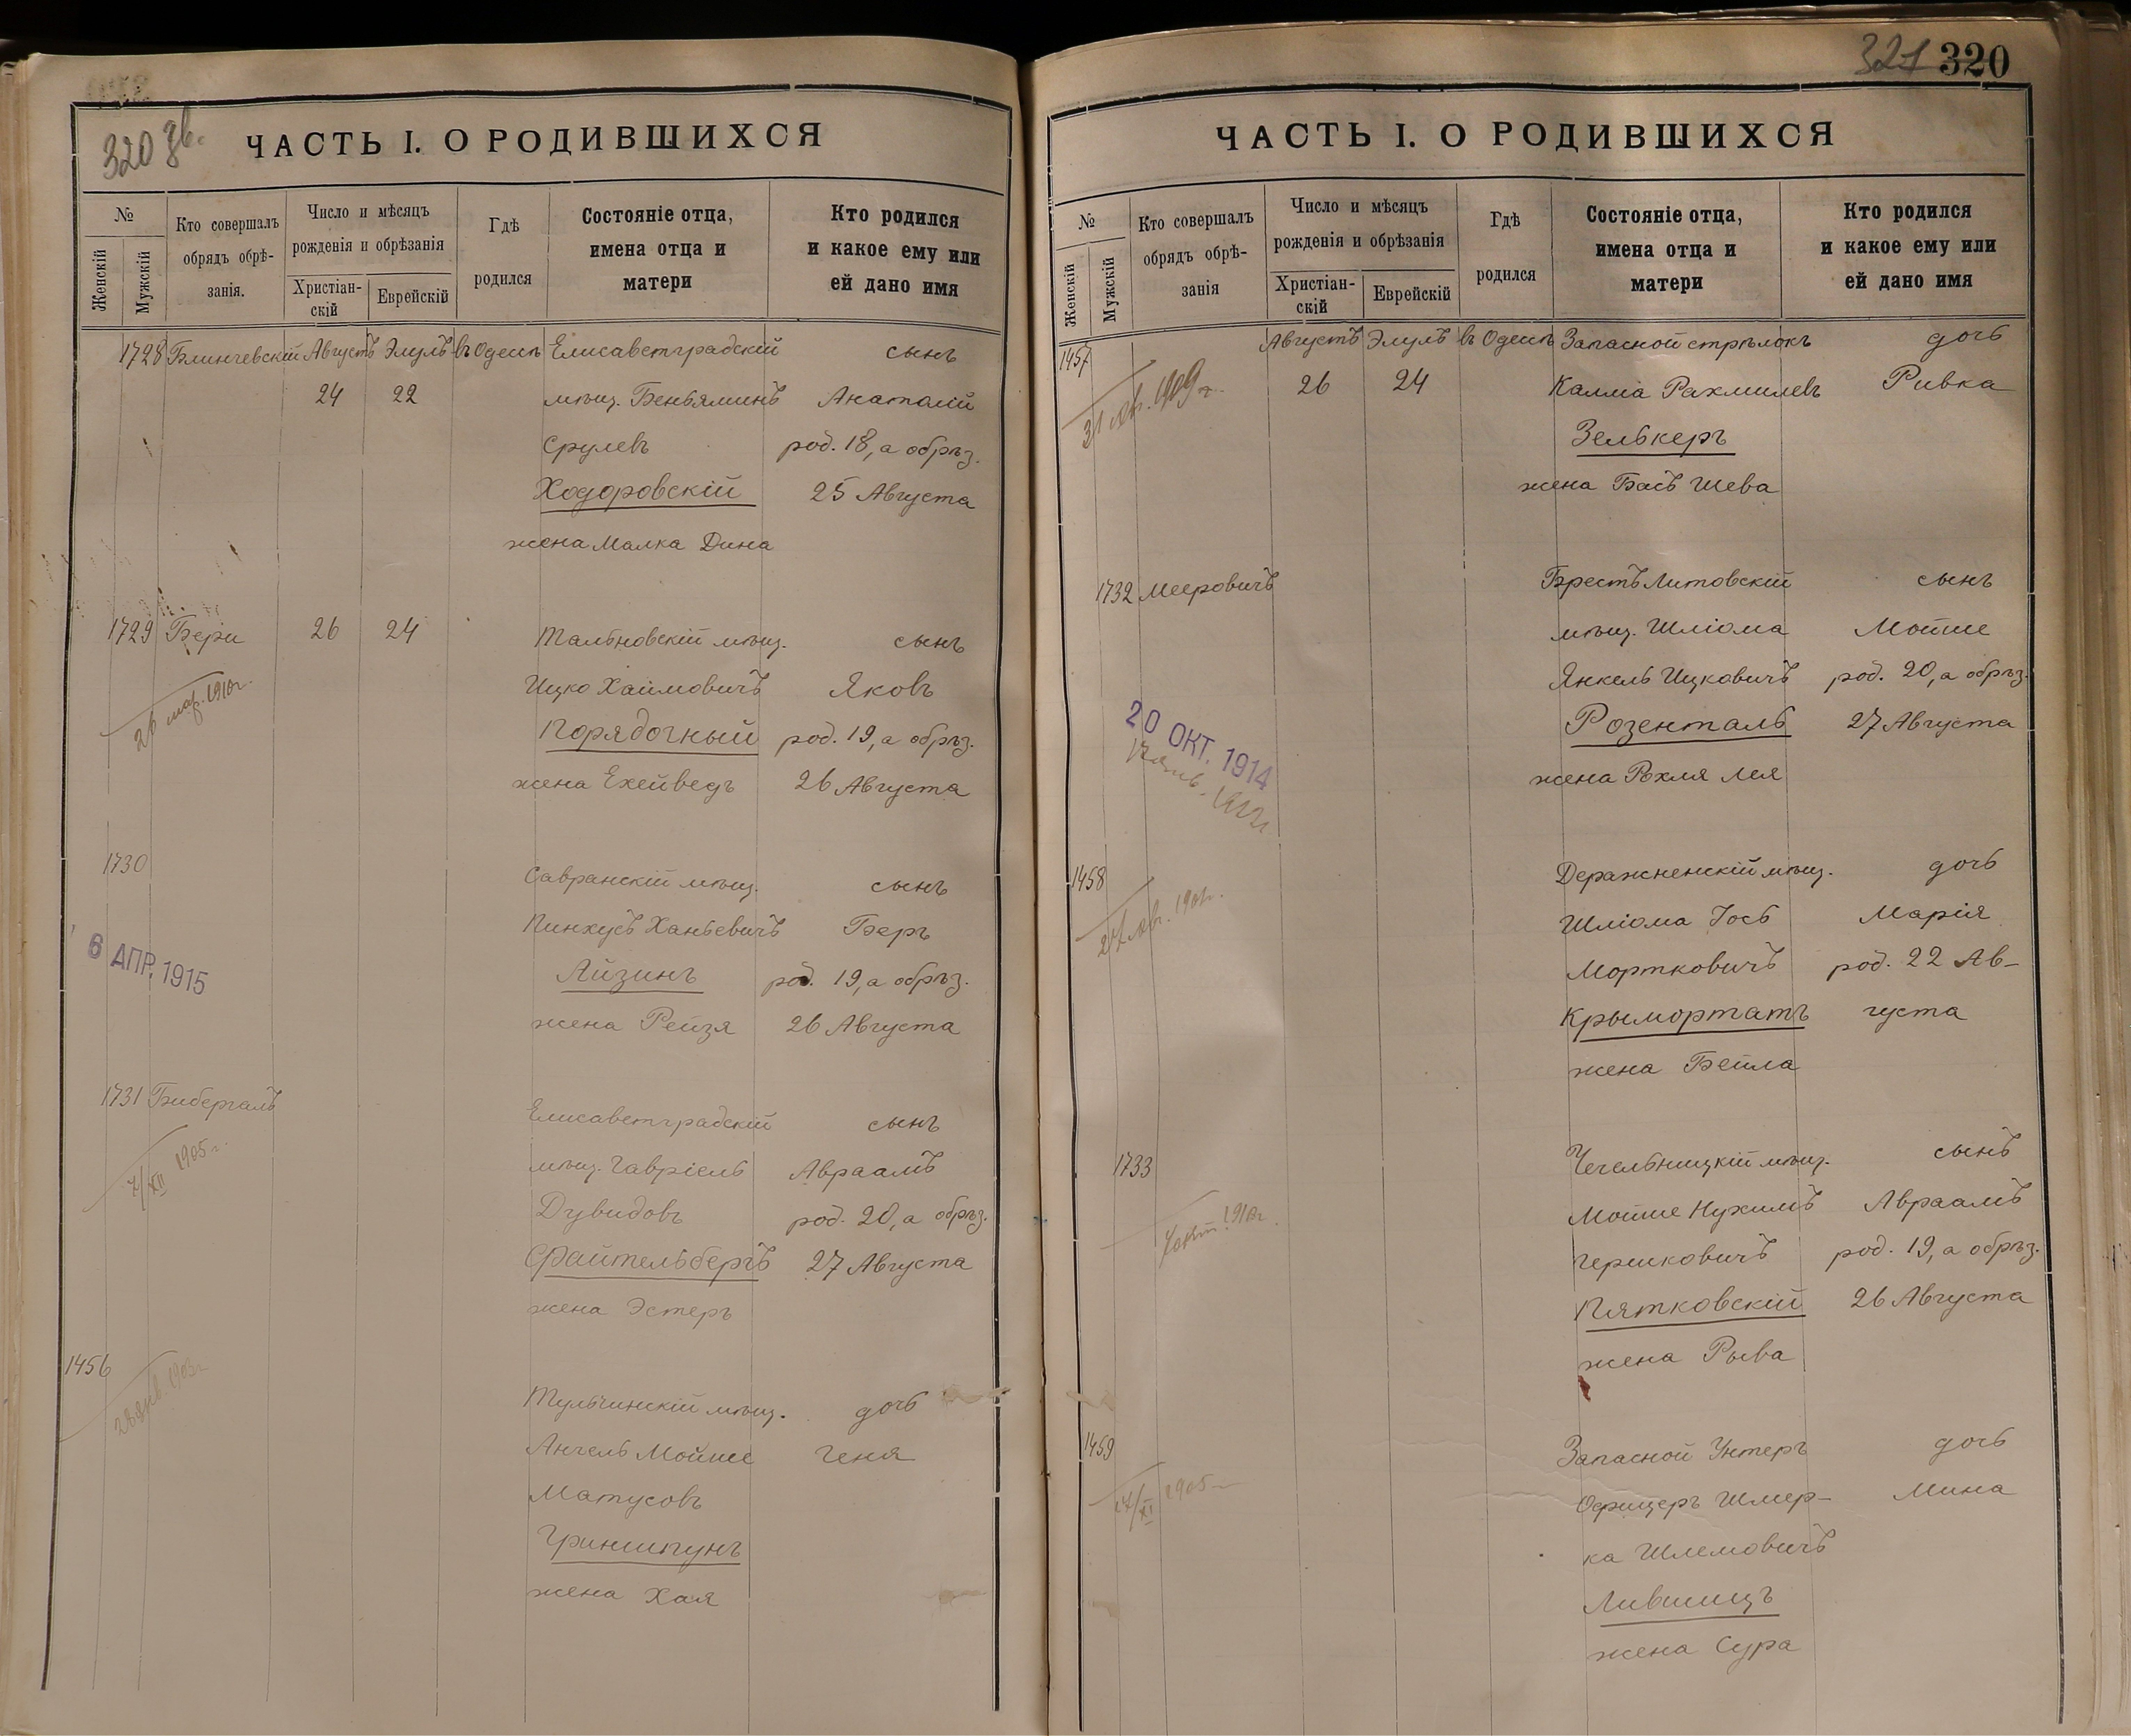 320 зв.
ЧАСТЬ I. О РОДИВШИХСЯ
№
Женскій
Мужскій
Кто совершалъ
обрядъ обрѣ-
занія.
Число и мѣсяцъ
рожденія и обрѣзанія
Христіан-
скій
Еврейскій
Гдѣ
родился
Состояніе отца,
имена отца и
матери
Кто родился
и какое ему или
ей дано имя
1728 Блинчевскій Августъ Элулъ въ Одессѣ Елисаветградскій сынъ
24 22 мѣщ. Беньяминъ Анатолій
Срулевъ род. 18, а обрѣз.
Ходоровскій 25 Августа
жена Малка Дина
1729 Бери 26 24 Тальновскій мѣщ. сынъ
Ицко Хаимовичъ Яковъ
26 мар. 1910г.
Порядочный род. 19, а обрѣз.
жена Ехейведъ 26 Августа
1730 Савранскій мѣщ. сынъ
Пинхусъ Ханьевичъ Беръ
6 АПР. 1915
Айзинъ род. 19, а обрѣз.
жена Рейзя 26 Августа
1731 Бибергалъ Елисаветградскій сынъ
7/XII 1905 г.
мѣщ. Гавріель Авраамъ
Дувидовъ род. 20, а обрѣз.
Файтельбергъ 27 Августа
жена Эстеръ
1456 Тульчинскій мѣщ. дочь
28 янв. 1903г
Ангель Мойше Геня
Матусовъ
Гриншпунъ
жена Хая
321 320
ЧАСТЬ I. О РОДИВШИХСЯ
№
Женскій
Мужскій
Кто совершалъ
обрядъ обрѣ-
занія
Число и мѣсяцъ
рожденія и обрѣзанія
Христіан-
скій
Еврейскій
Гдѣ
родился
Состояніе отца,
имена отца и
матери
Кто родился
и какое ему или
ей дано имя
1457 Августъ Элулъ въ Одессѣ Запасной стрѣлокъ дочь
26 24 Калма Рахмилевъ Ривка
31 1909 г.
Зелькеръ
жена Бася Шева
1732 Мееровичъ Брестъ Литовскій сынъ
мѣщ. Шліома Мойше
Янкель Ицковичъ род. 20, а обрѣз.
20 ОКТ. 1914
Розенталь 27 Августа
жена Рохля Лея
1458 Деражненскій мѣщ. дочь
Шліома Іось Марія
Мортковичъ род. 22 Ав-
Крымортатъ густа
жена Бейла
1733 Чечельницкій мѣщ. сынъ
Мойше Нухимъ Авраамъ
7 окт. 1910г.
Гершковичъ род. 19, а обрѣз.
Пятковскій 26 Августа
жена Рыва
1459 Запасной Унтеръ дочь
17/XI 1905
Офицеръ Шмер- Мина
ка Шлемовичъ
Лившицъ
жена Сура